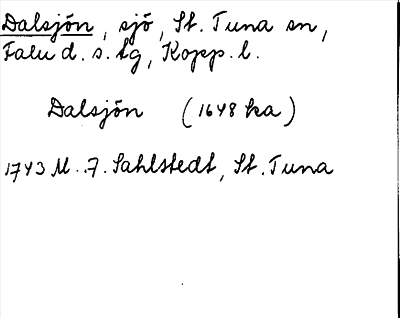 Dalsjön, sjö, St. Tuna sn,
Falu d. s. tg, Kopp. l.
Dalsjön (1648 ka)
1743 M. 7. Sahlstedt, St. Tuna